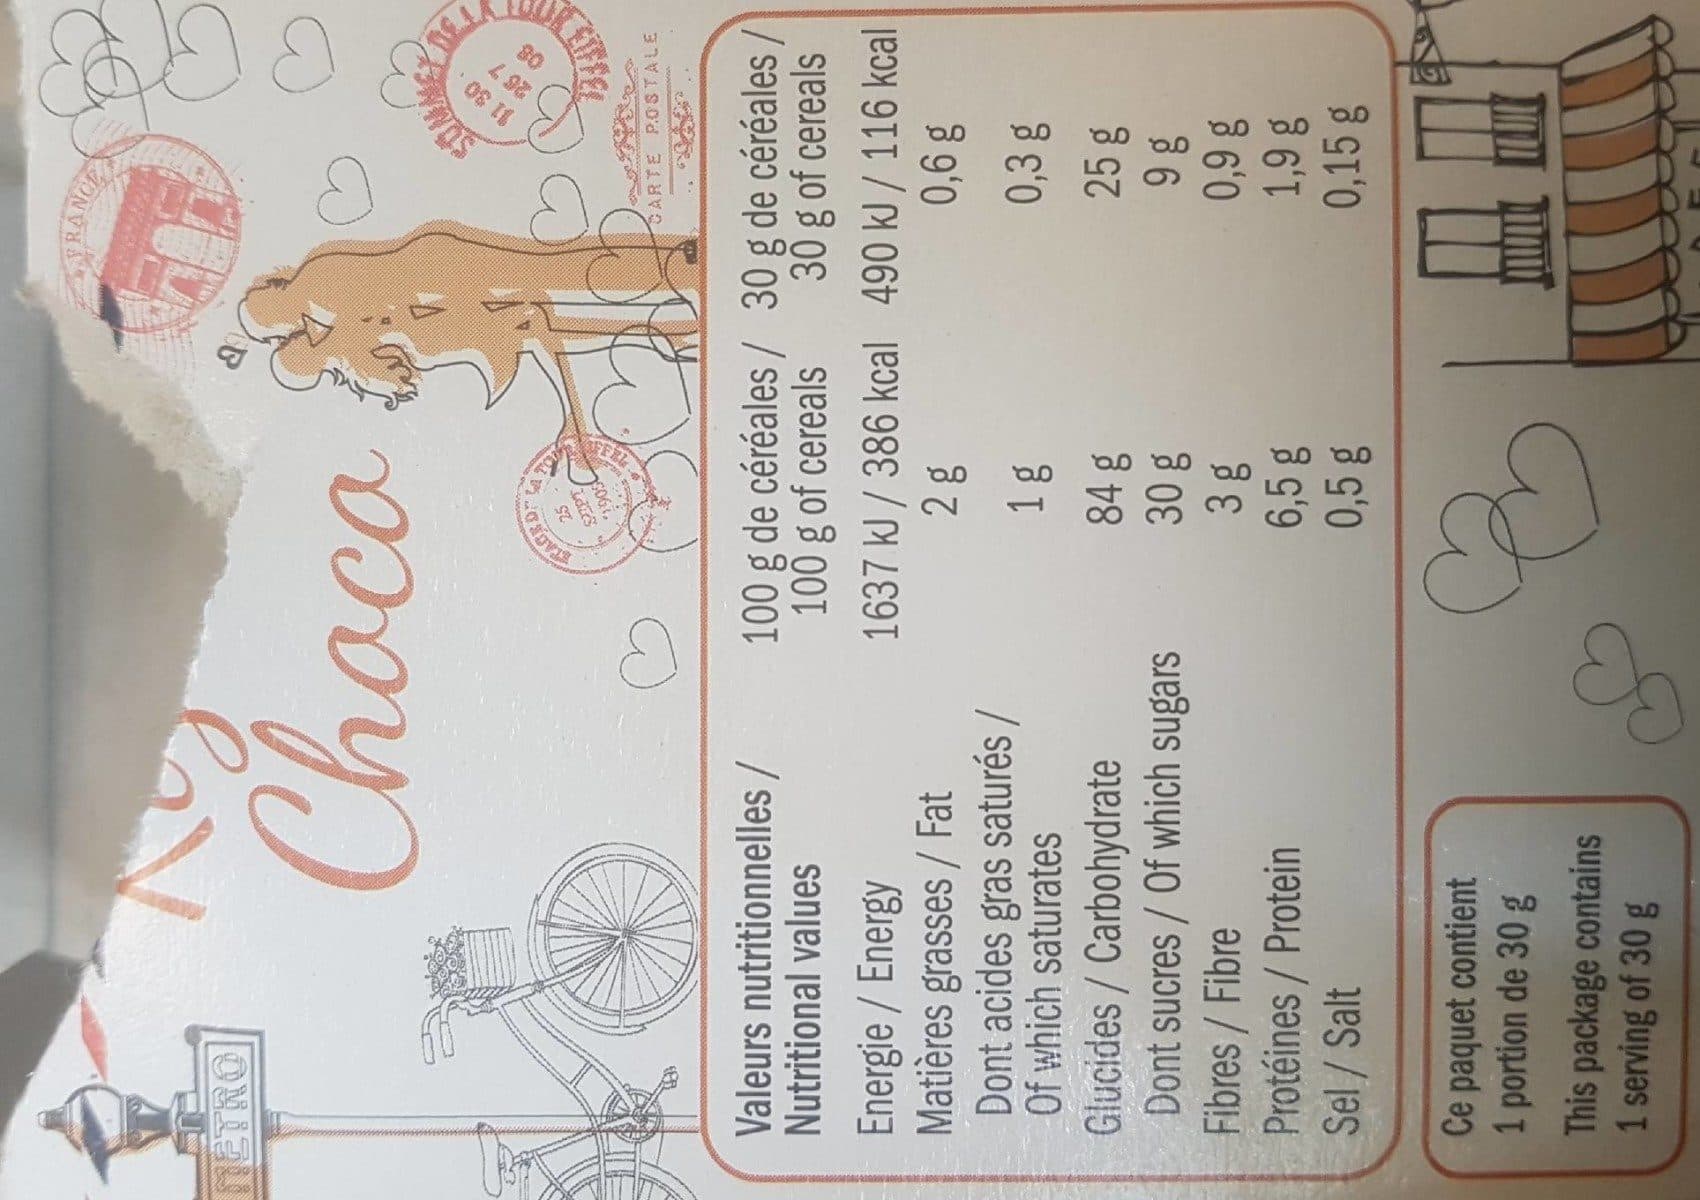 Choca
FRANCE
SOMMET DE LA TOUR EIFFEL
CARTE POSTALE
METRO
Valeurs nutritionnelles / 100 g de céréales / 30 g de céréales /
Nutritional values 100 g of cereals 30 g of cereals
Energie / Energy 1637 kJ / 386 kcal 490 kJ / 116 kcal
Matières grasses / Fat 2 g 0,6 g
Dont acides gras saturés /
Of which saturates 1 g 0,3 g
Glucides / Carbohydrate 84 g 25 g
Dont sucres / Of which sugars 30 g 9 g
Fibres / Fibre 3 g 0,9 g
Protéines / Protein 6,5 g 1,9 g
Sel / Salt 0,5 g 0,15 g
Ce paquet contient
1 portion de 30 g
This package contains
1 serving of 30 g